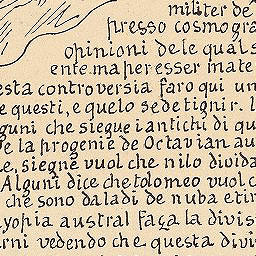 militer de
presso cosmogra
opinioni de le qual s
ente. ma per esser mate
esta controversia faro qui un
e questi, e quelo se de tignir. I
guni che siegue i antichi di qu
ve la progenie de Octavian au
le, siegne vuol che nilo divida
Alguni dice che tolomeo vuol c
che sono da la di de nuba e tin
yohia austral faça la divis
rni vedendo che questa divi